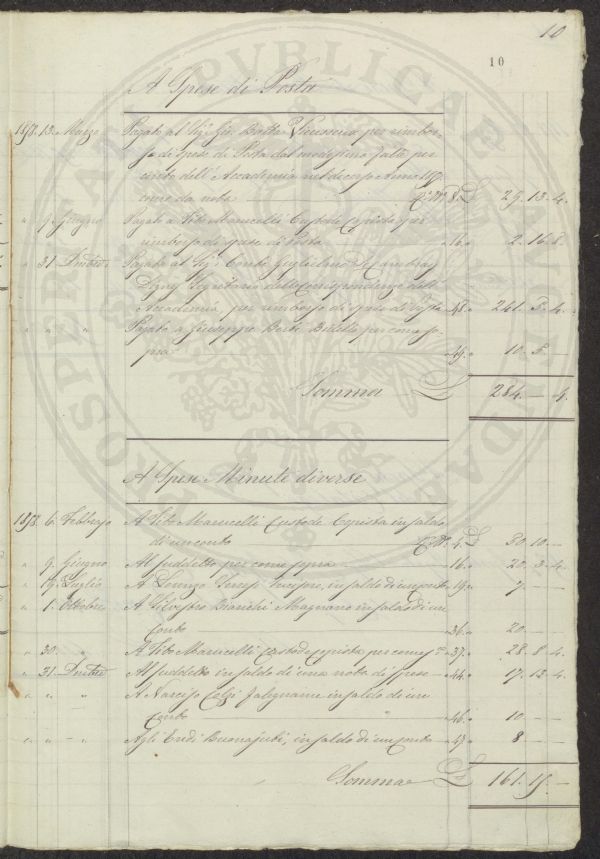 10
10
A Spese di Posta
1858. 13. Marzo Pagato al Sig. Gio. Batta per rimbor-
so di spese di Posta dal medesimo fatte per
conto dell'Accademia nel decorso Anno 1857
come da nota N. 8. L 29. 13. 4.
" 9. Giugno Pagato a Tito Marucelli Custode Copista per
rimborso di spese di Posta " 16. " 2. 16. 8.
" 31. Dmbre Pagato al Sig. Conte Guglielmo
Degno Segretario delle Corrispondenze dell'
Accademia, per rimborso di spese di Posta " 48. " 241. 5. 4.
" " " Pagato a Giuseppe Berti Bidello per come so-
pra " 49. " 10. 5. —
Somma L 284. — 4.
A Spese Minute diverse
1858. 6. Febbrajo A Tito Marucelli Custode Copista in saldo
di un conto N. 4. L 30. 10. —
" 9. Giugno Al suddetto per come sopra " 16. " 20. 3. 4.
" 19. Luglio A Lorenzo in saldo di un conto " 19. " 7. — —
" 1. Ottobre A Silvestro Bianchi Magnano in saldo di un
Conto " 36. " 20. — —
" 30. " A Tito Marucelli Custode Copista per come sa. " 37. " 28. 8. 4.
" 31. Dmbre Al suddetto in saldo di una nota di spese " 44. " 17. 13. 4.
" " " A Narciso Falegname in saldo di un
Conto " 46. " 10. — —
" " " Agli Eredi Buonajuti, in saldo di un conto " 47. " 8. — —
Somma L 161. 15. —
PROSPERITATI PUBLICAE AUGENDAE